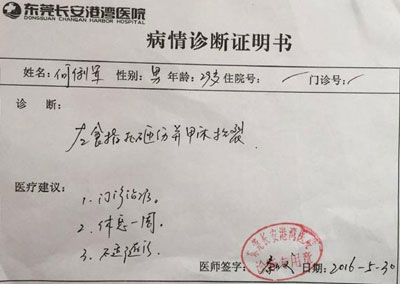 东莞长安港湾医院
DONGGUAN CHANGAN HARBOR HOSPITAL
病情诊断证明书
姓名: 何俐军 性别: 男 年龄: 29岁 住院号: / 门诊号: /
诊 断:
左食指砸伤并甲床挫裂.
医疗建议:
1. 门诊治疗。
2. 休息一周。
3. 不适随诊
东莞长安港湾医院
专用章
医师签字: 日期: 2016-5-30